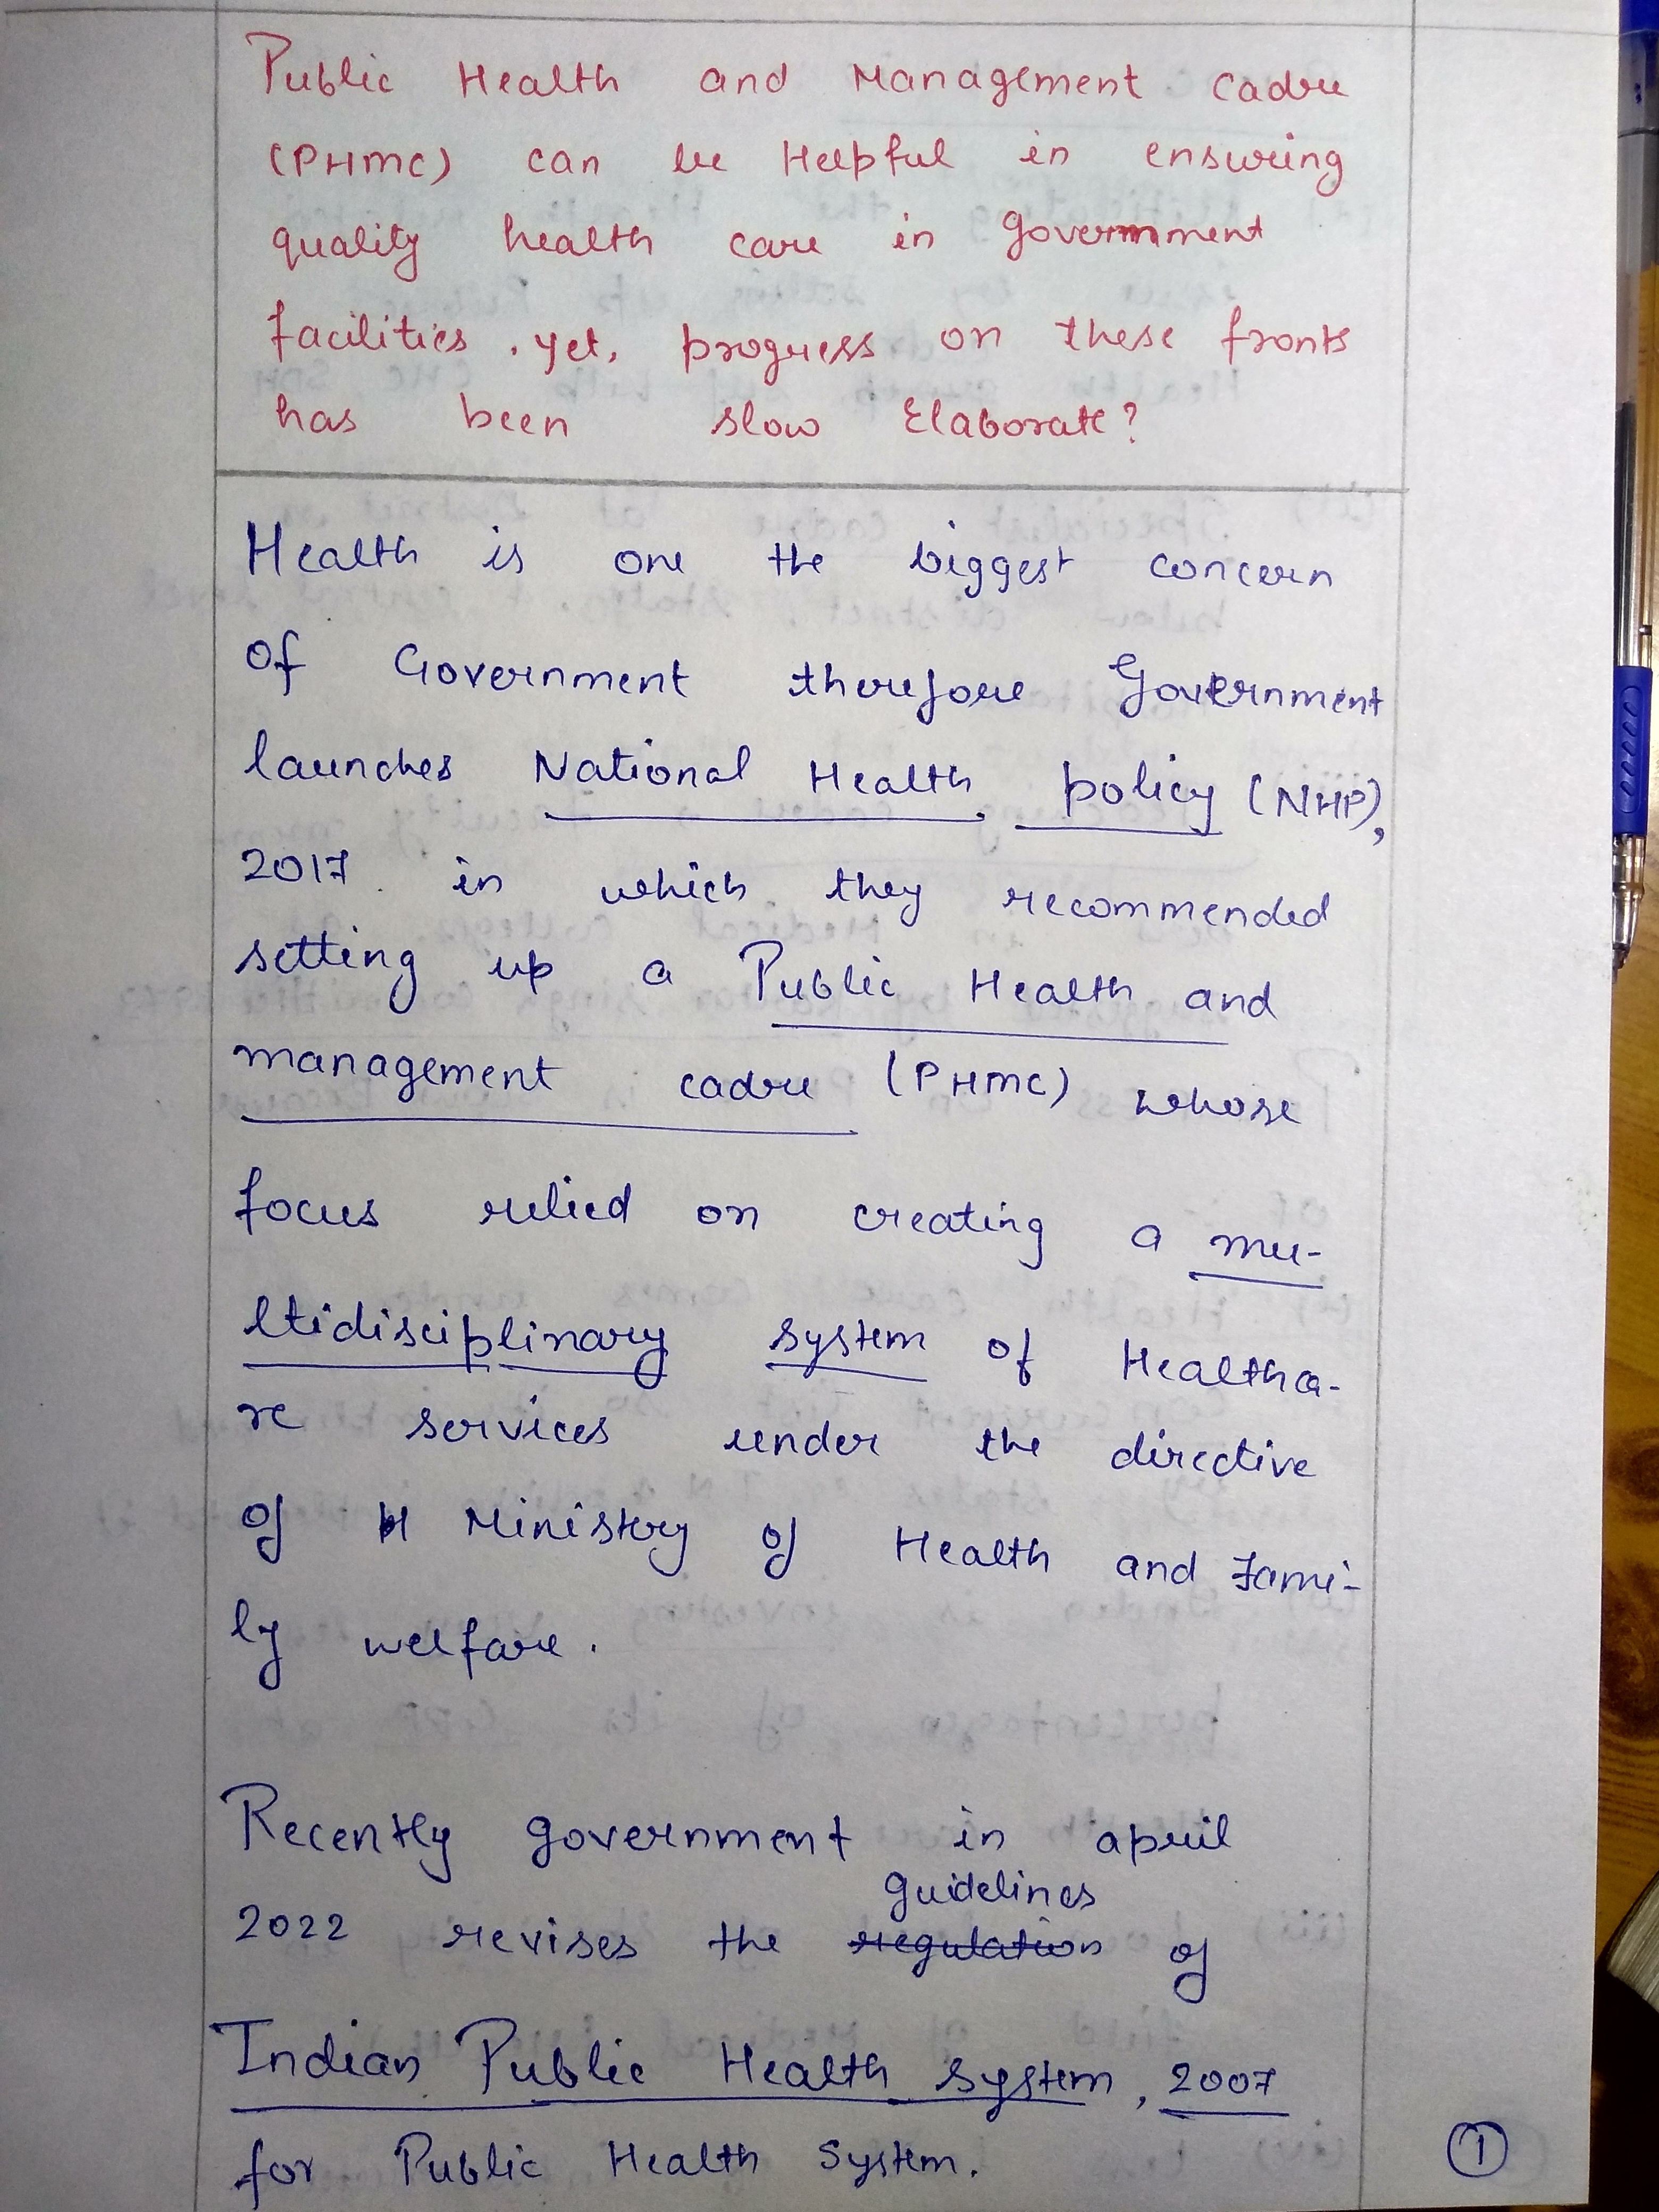 Public Health and Management cadre
(PHMC) can be Helpful in ensuring
quality health care in Government
facilities. yet, progress on these fronts
has been slow Elaborate?
Health is one the biggest concern
of Government therefore Government
launches National Health policy (NHP),
2017 in which they recommended
setting up a Public Health and
management cadre (PHMC) whose
focus relied on creating a mu-
ltidisciplinary system of Healthca-
re services under the directive
of Ministery of Health and Fami-
ly welfare.
Recently government in april
guidelines
2022 revises the regulation of
Indian Public Health system, 2007
for Public Health System.
1